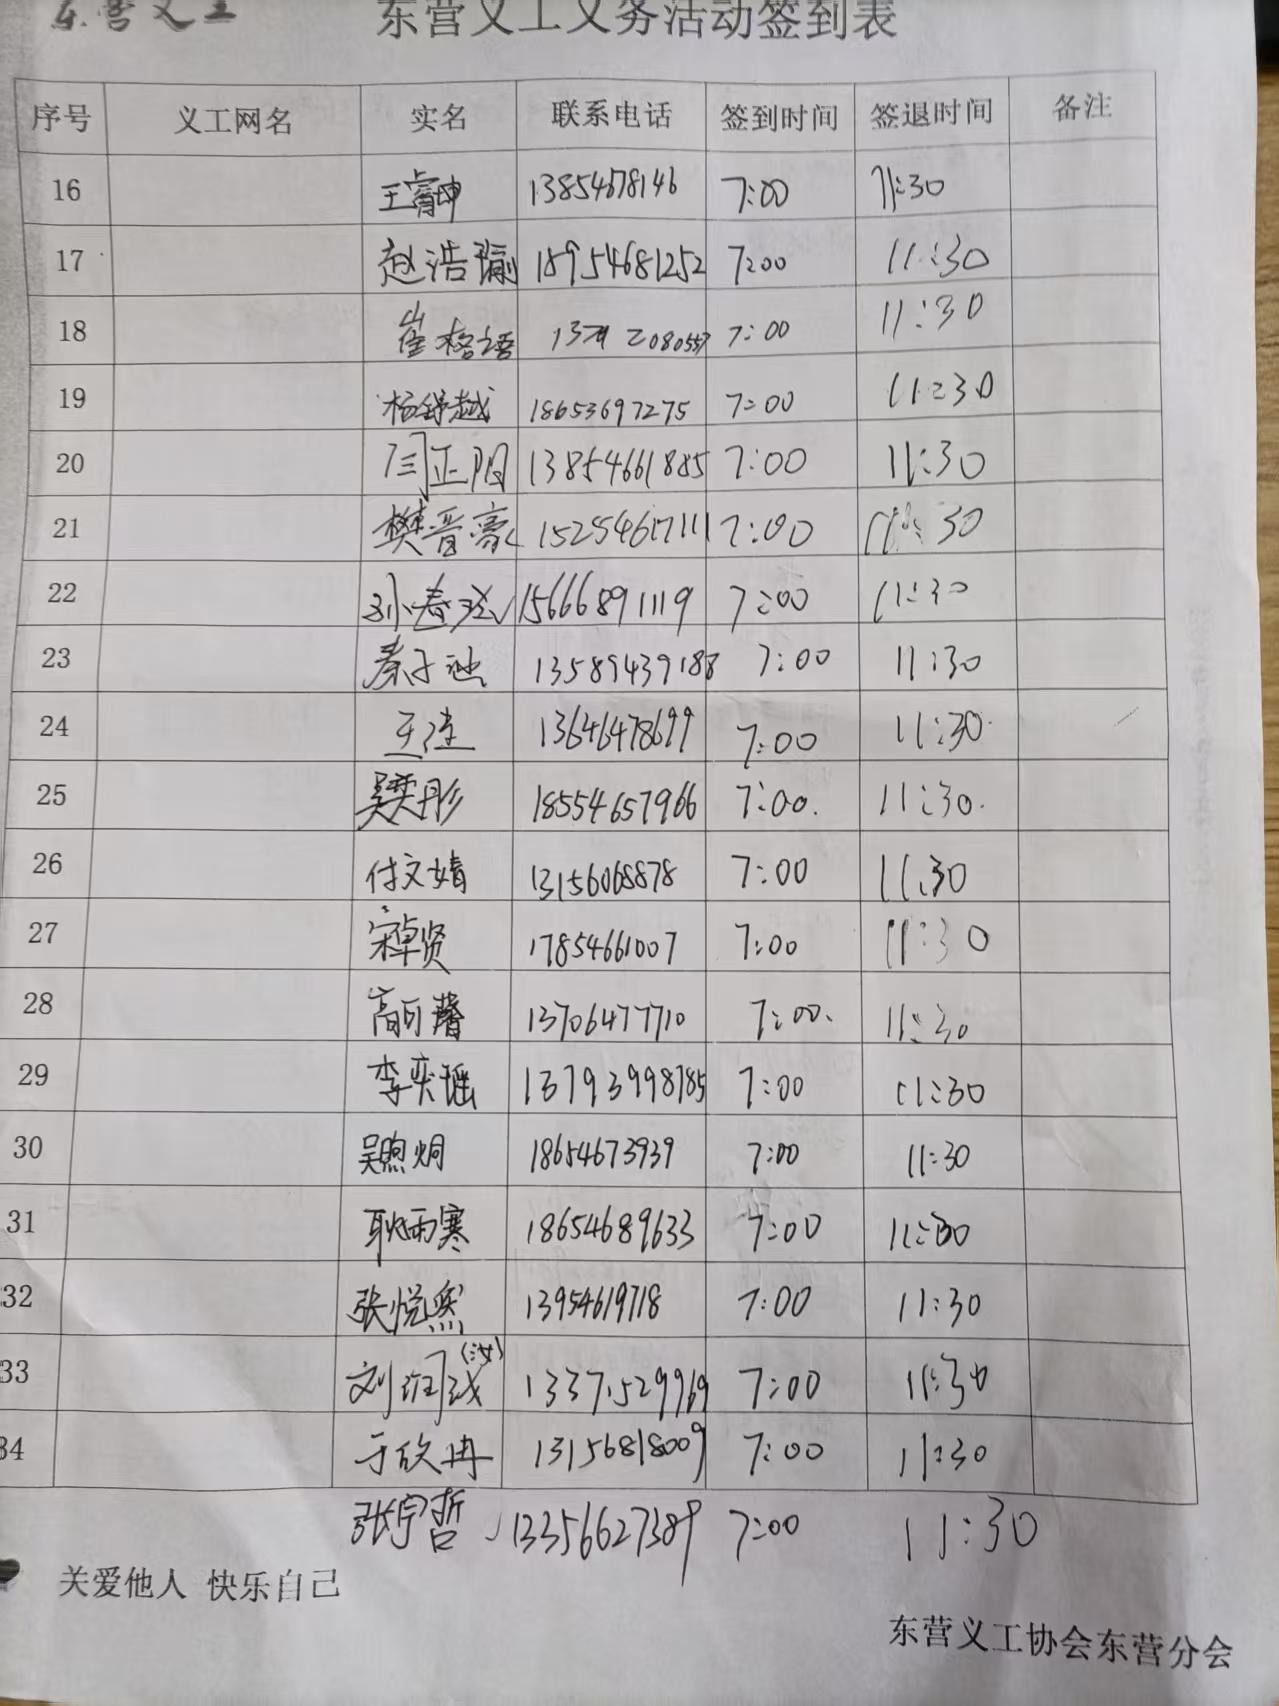 东营义工
东营义工义务活动签到表
序号 义工网名 实名 联系电话 签到时间 签退时间 备注
16 王睿坤 13854678146 7:00 11:30
17 赵浩瑜 18954681252 7:00 11:30
18 崔格语 7:00 11:30
19 杨舒越 18653697275 7:00 11:30
20 闫正阳 13854661885 7:00 11:30
21 樊晋豪 15254617111 7:00 11:30
22 孙春 15666891119 7:00 11:30
23 秦子 13589439188 7:00 11:30
24 13646478699 7:00 11:30
25 吴奕彤 18554657966 7:00 11:30
26 付文婧 13156068878 7:00 11:30
27 宋卓贤 17854661007 7:00 11:30
28 高可馨 13706477710 7:00 11:30
29 李奕瑶 13793998785 7:00 11:30
30 吴煦炯 18654673939 7:00 11:30
31 耿雨寒 18654689633 7:00 11:30
32 张悦然 13954619718 7:00 11:30
33 刘 (汝) 13371529969 7:00 11:30
34 于欣冉 13156818009 7:00 11:30
张宇哲 13356627389 7:00 11:30
关爱他人 快乐自己
东营义工协会东营分会